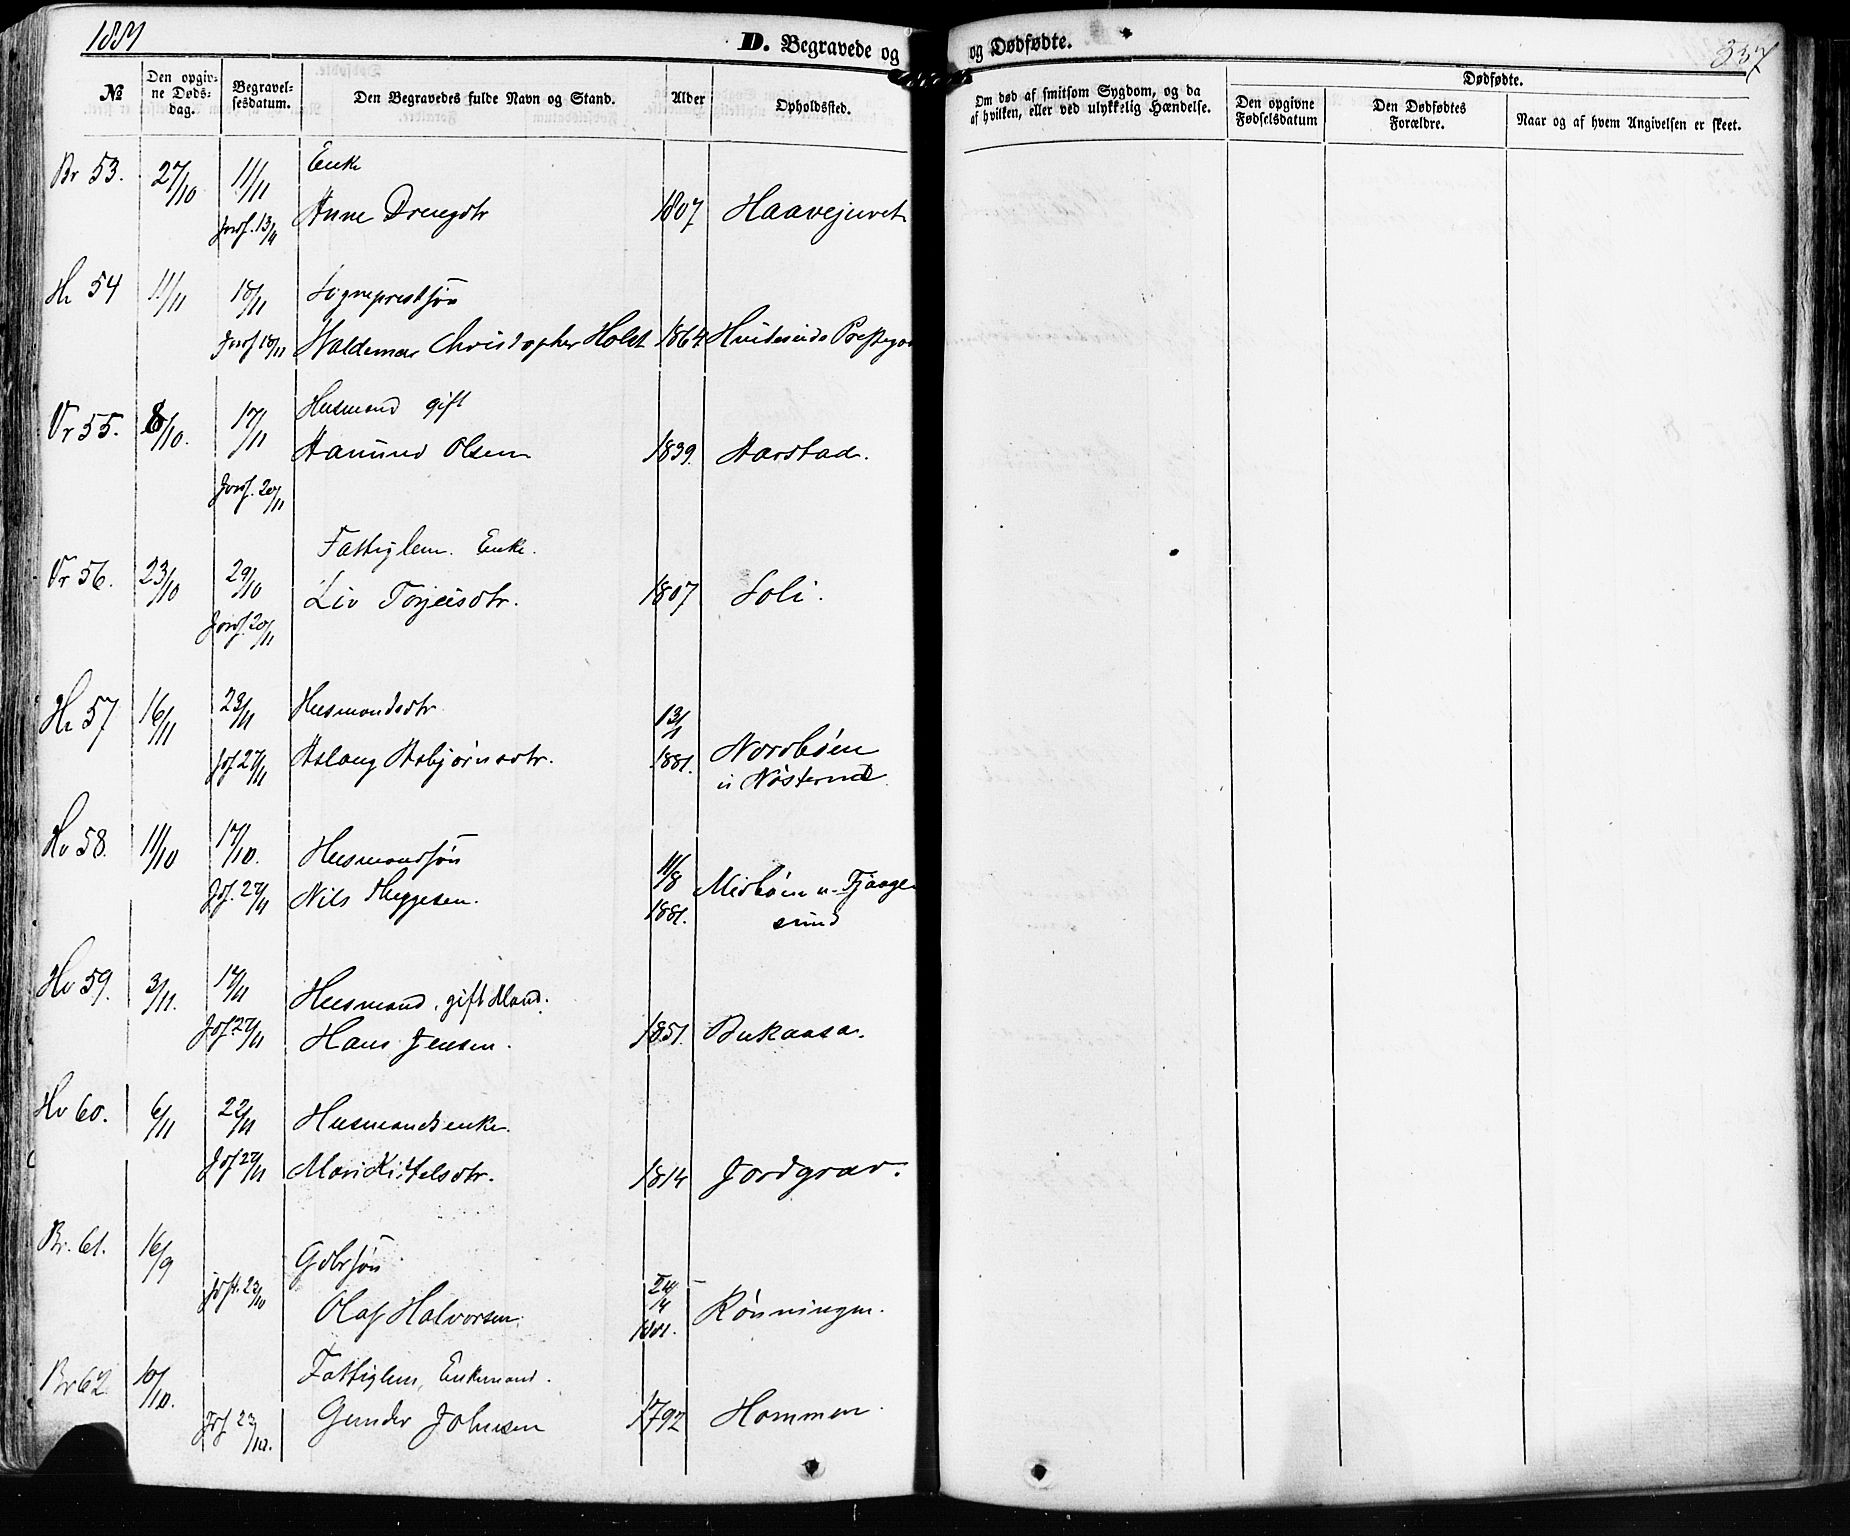 D. Begravede og
og Dødfødte.
№
Den opgivne Døds-
dag.
Begravel-
sesdatum.
Den Begravedes fulde Navn og Stand.
Alder
Opholdssted.
Om død af smitsom Sygdom, og da
af hvilken, eller ved ulykkelig Hændelse.
Den opgivne
Fødselsdatum
Dødfødte.
Den Dødfødtes
Forældre.
Naar og af hvem Angivelsen er skeet.
Br 53. 27/10 11/11 Enke
Anne Drengdtr 1807 Haavejuvet
54 11/11 18/11 Sogneprestsøn
Jordf 18/11 Waldemar Christopher Holst 1864 Hvideseids Prestegaa
Vr 55. 8/10. 17/11 Husmand gift
Aamund Olsen 1839. Aarstad.
Jordf. 20/11
Vr 56. 23/10 29/10 Fattiglem. Enke.
Liv Torjeisdtr. 1807 Soli.
Jordf. 20/11
57 16/11 23/11 Husmandsdtr
Jdf 27/11 Aslaug Asbjørnsdtr. 13/1 1881. Nordbøen
u Nøsterud
Hv 58. 11/10 17/10. Husmandsøn
Jdf. 27/11 Nils Heggesen. 11/8 1881. Midbøen u. Fjaage
sund
Hv 59. 3/11. 17/11 Husmand, gift Mand.
Jdf 27/11 Hans Jensen. 1851. Bukaasa.
Hv 60. 6/11 22/11 Husmandsenke.
Jdf 27/11 Mari Kittelsdtr. 1814 Jordgrav.
Br. 61. 16/9 Gdbrsøn
Olaf Halvorsen. 24/4 1881. Rønningen.
Br 62. 10/10. Fattiglem, Enkemand.
Jdf 23/10. Gunder Johnsen 1792 Hommen.